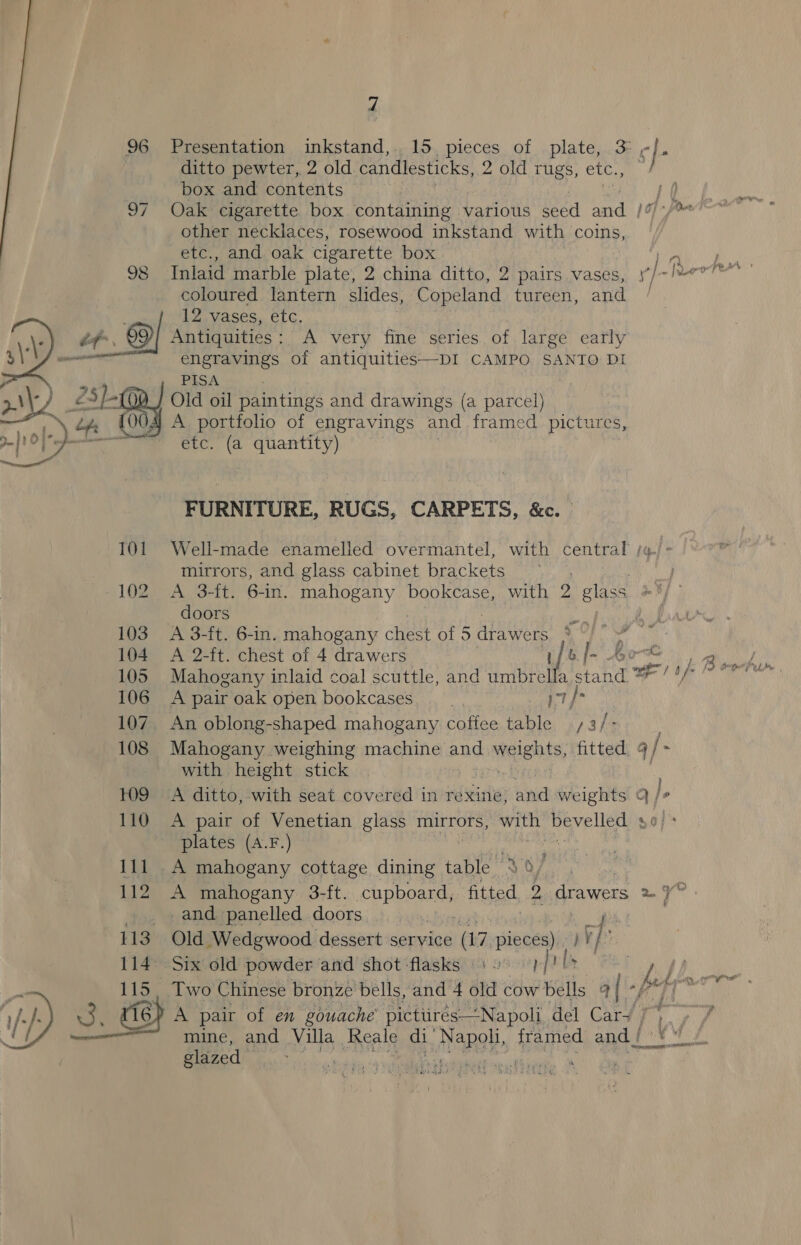 7
96 Presentation inkstand, 15 pieces of plate, 3
ditto pewter, 2 old candlesticks, 2 old rugs, etc.,
box and contents
97 Oak cigarette box containing various seed and
other necklaces, rosewood inkstand with coins,
etc., and oak cigarette box
98 Inlaid marble plate, 2 china ditto, 2 pairs vases,
coloured lantern slides, Copeland tureen, and
12 vases, etc.
99 Antiquities: A very fine series of large early
engravings of antiquities—DI CAMPO SANTO DI
PISA
25/- Old oil paintings and drawings (a parcel)
100A A portfolio of engravings and framed pictures,
etc. (a quantity)
FURNITURE, RUGS, CARPETS, &c.
101 Well-made enamelled overmantel, with central
mirrors, and glass cabinet brackets
102 A 3-ft. 6-in. mahogany bookcase, with 2 glass
doors
103 A 3-ft. 6-in. mahogany chest of 5 drawers
104 A 2-ft. chest of 4 drawers
105 Mahogany inlaid coal scuttle, and umbrella stand
106 A pair oak open bookcases 17/-
107 An oblong-shaped mahogany coffee table 13/-
108 Mahogany weighing machine and weights, fitted 9/-
with height stick
109 A ditto, with seat covered in rexine, and weights 9/-
110 A pair of Venetian glass mirrors, with bevelled
plates (A.F.)
111 A mahogany cottage dining table
112 A mahogany 3-ft. cupboard, fitted 2 drawers
and panelled doors
113 Old Wedgwood dessert service (17 pieces)
114 Six old powder and shot flasks
115 Two Chinese bronze bells, and 4 old cow bells
116 A pair of en gouache pictures—Napoli del Car-
mine, and Villa Reale di Napoli, framed and
glazed